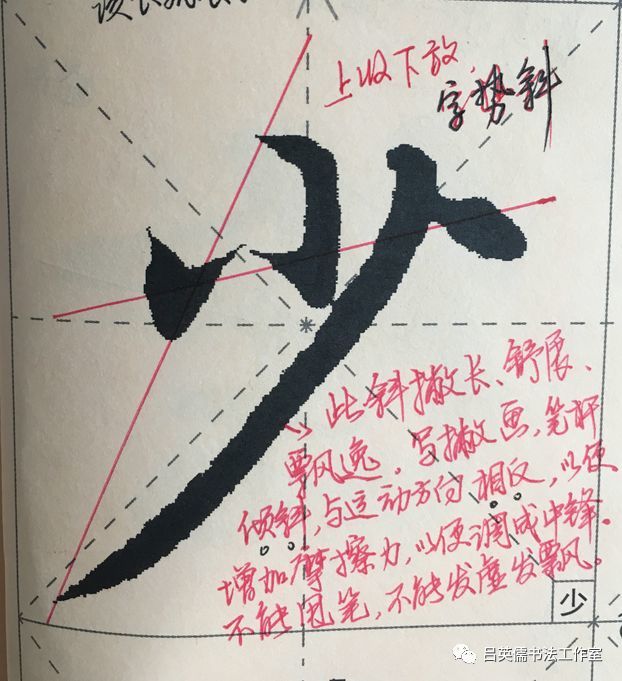 上收下放,
字势斜
少
此斜撇长、舒展、
飘逸,写撇画,笔杆
倾斜,与运动方向相反,以便
增加摩擦力,以便调成中锋。
不能甩笔,不能发虚发飘。
少
吕英儒书法工作室